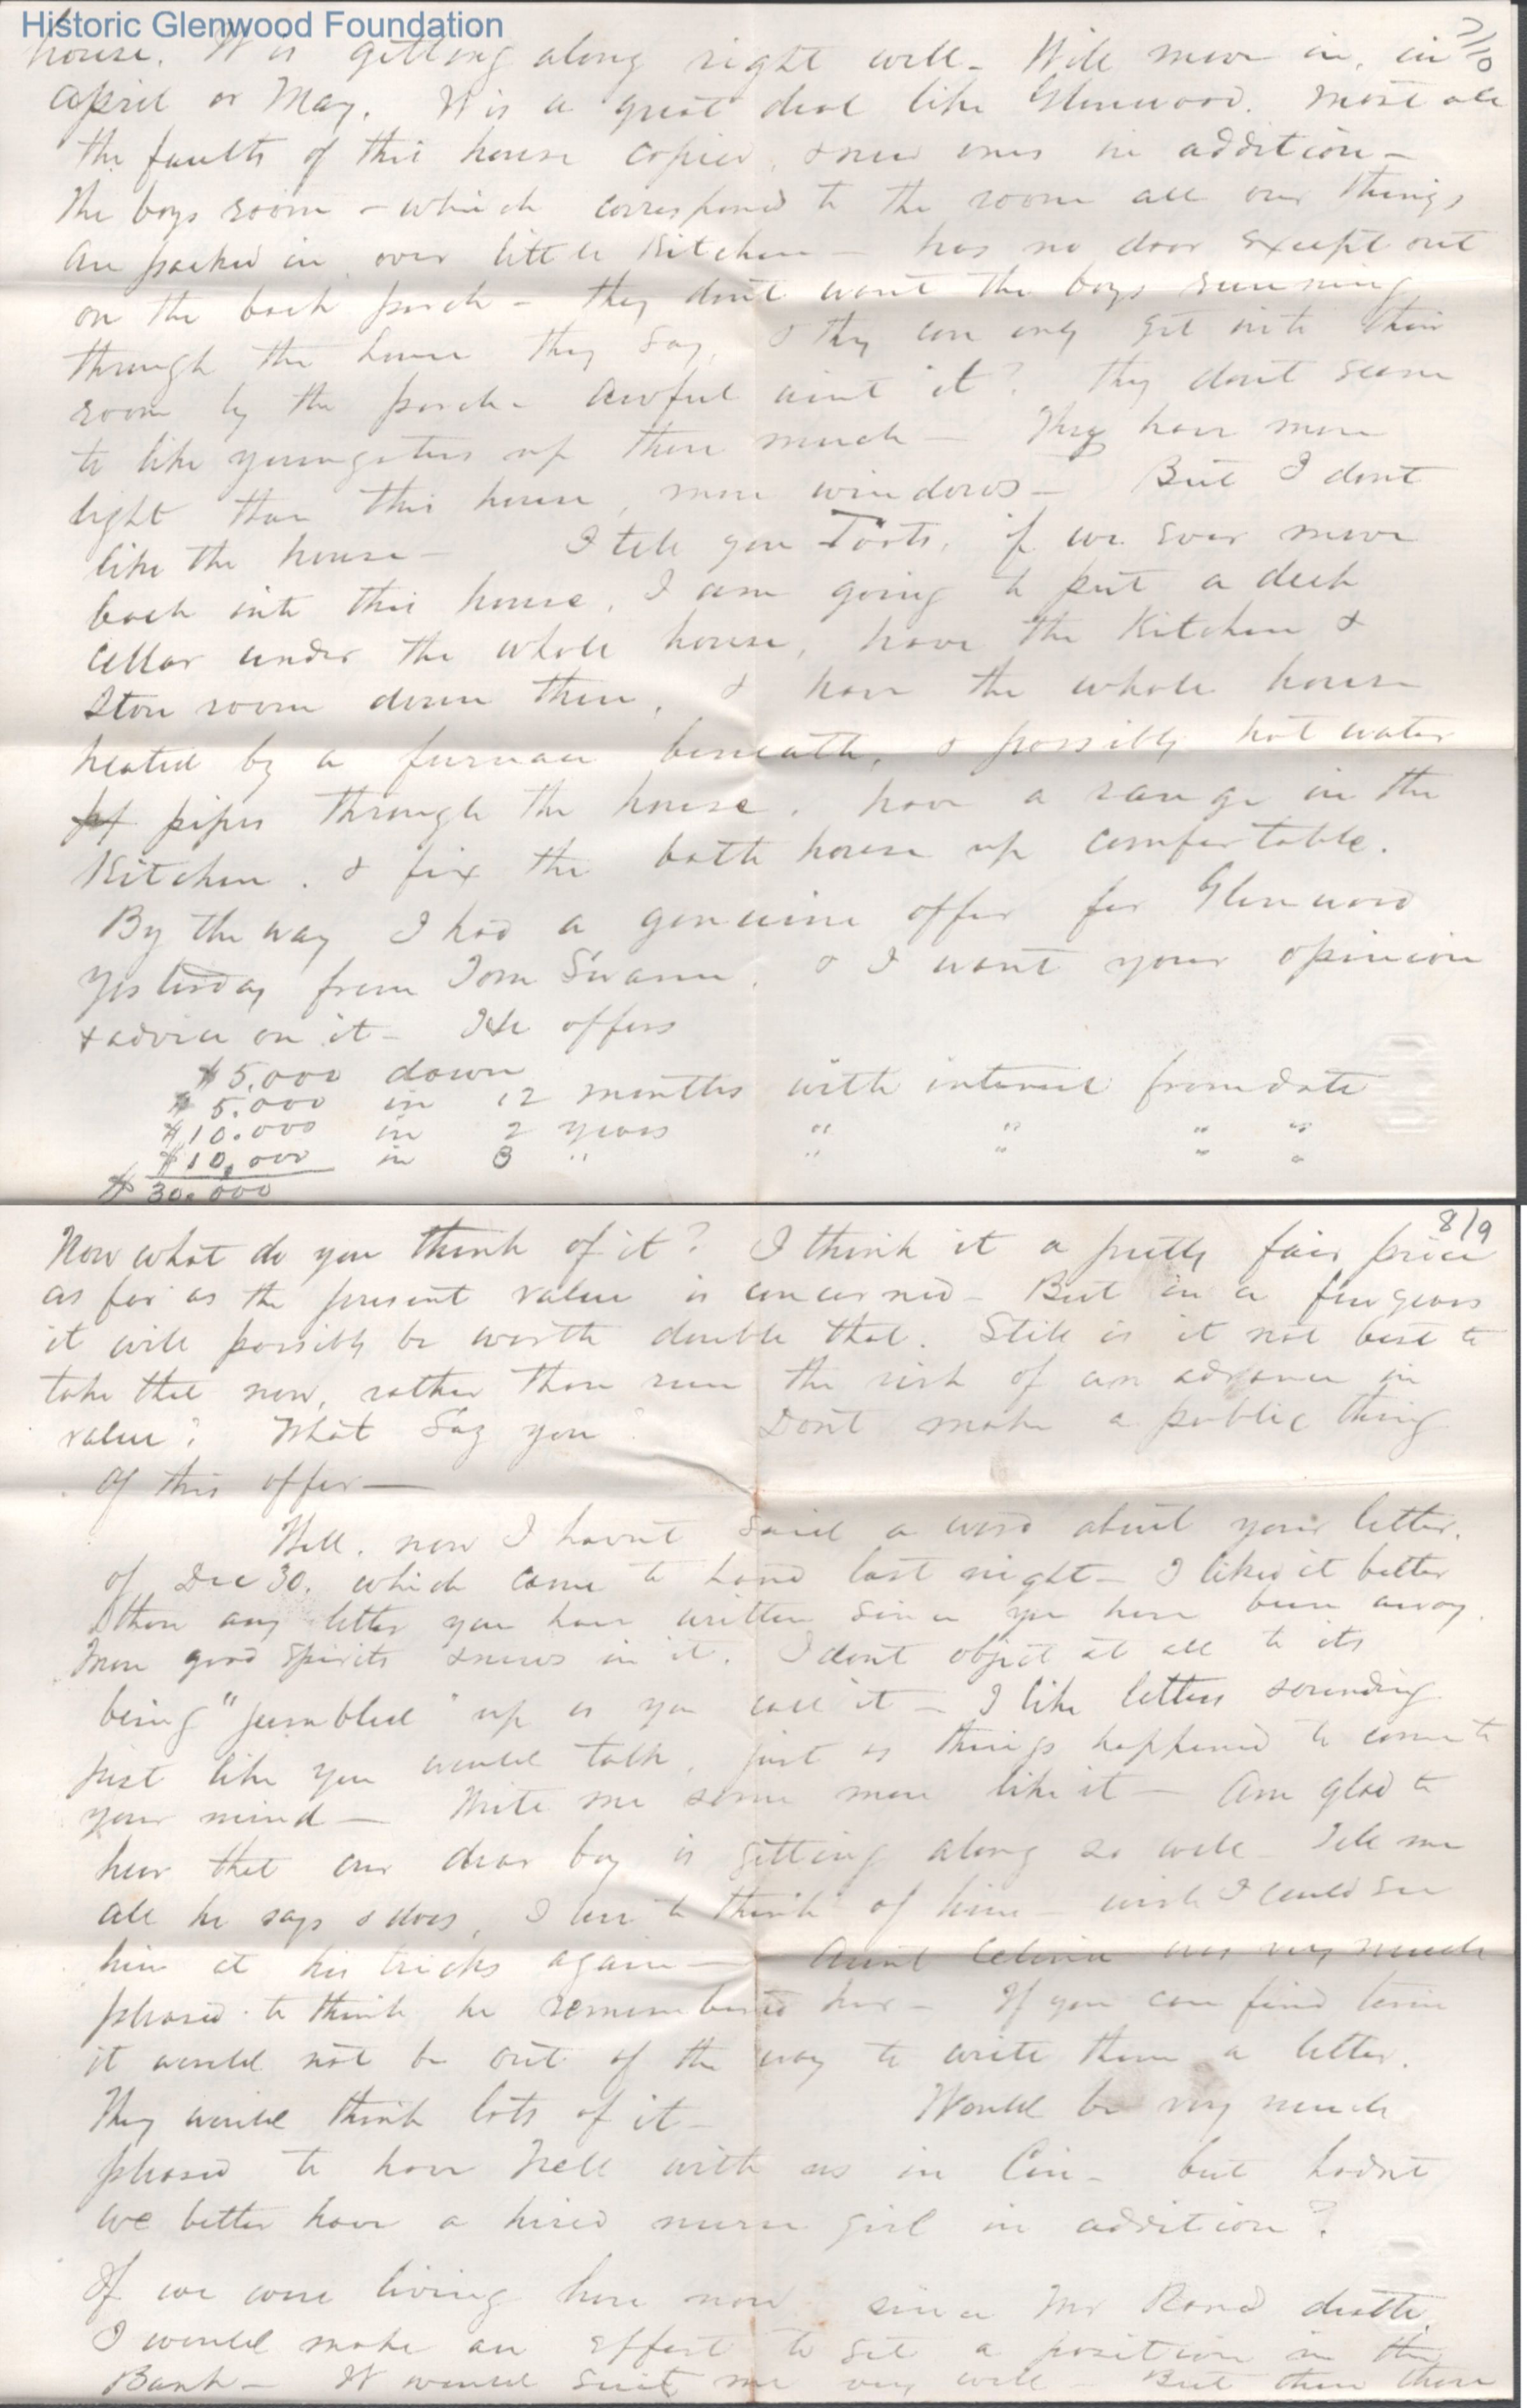 Historic Glenwood Foundation
7/10
house. It is getting along right well - Will move in, in
April or May. It is a great deal like Glenwood. Most all
the faults of this house copied, & new ones in addition -
The boys room - which correspond to the room all our things
are packed in, over little Kitchen - has no door except out
on the back porch - they dont want the boys running
through the house they say, & they can only get into their
room by the porch - Awful aint it? They dont seem
to like youngsters up there much - They have more
light than this house, more windows - But I dont
like the house - I tell you Toots, if we ever move
back into this house, I am going to put a
cellar under the whole house, have the Kitchen &
Store room down there, & have the whole house
heated by a furnace beneath, & possibly hot water
pipes through the house, have a range in the
Kitchen, & fix the bath house up comfortable.
By the way I had a genuine offer for Glenwood
yesterday from Tom Swann, & I want your opinion
& advice on it - He offers
$5,000 down
$5.000 in 12 months with interest from date
$10.000 in 2 years " " " "
$10,000 in 3 " " " " "
$30.000
8/9
Now what do you think of it? I think it a pretty fair price
as far as the present value is concerned - But in a few years
it will possibly be worth double that. Still is it not best to
take that now, rather than run the risk of an advance in
value? What Say you? Dont make a public thing
of this offer -
Well, now I havnt said a word about your letter,
of Dec 30, which came to hand last night - I liked it better
than any letter you have written since you have been away.
More good spirits & news in it. I dont object at all to its
being "jumbled" up as you call it - I like letters sounding
just like you would talk, just as things happened to come to
your mind - Write me some more like it - Am glad to
hear that our dear boy is getting along so well - Tell me
all he says & does, I love to think of him - wish I could see
him at his tricks again - Aunt was very much
pleased to think he remembered her - If you can find time
it would not be out of the way to write them a letter.
They would think lots of it - Would be very much
pleased to have Nell with us in Cin - but hadnt
we better have a hired nurse girl in addition?
If we were living here now since Mr Rand death,
I would make an effort to get a position in the
Bank - It would suit me very well - But then there